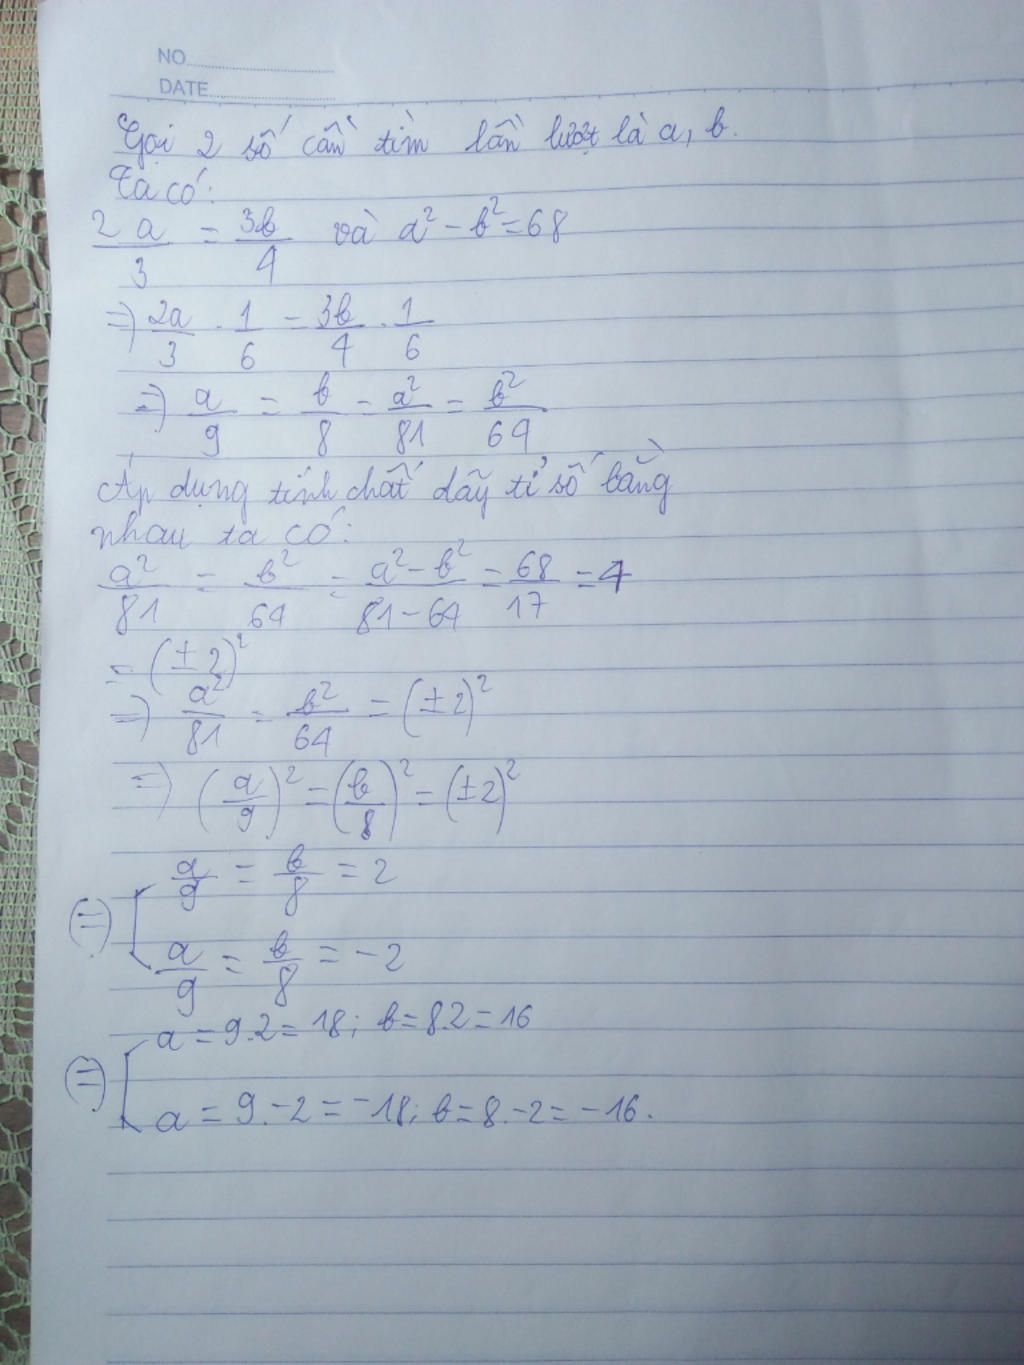 NO
DATE
Gọi 2 số cần tìm lần lượt là a, b.
Ta có:
2a/3 = 3b/4 và a² - b² = 68
=> 2a/3 . 1/6 = 3b/4 . 1/6
=> a/9 = b/8 = a²/81 = b²/64
Áp dụng tính chất dãy tỉ số bằng
nhau ta có:
a²/81 = b²/64 = a² - b²/81 - 64 = 68/17 = 4
= (± 2)²
=> a²/81 = b²/64 = (± 2)²
=> (a/9)² = (b/8)² = (± 2)²
a/9 = b/8 = 2
(=) [
a/9 = b/8 = -2
a = 9.2 = 18; b = 8.2 = 16
(=) [
a = 9.-2 = -18; b = 8.-2 = -16.